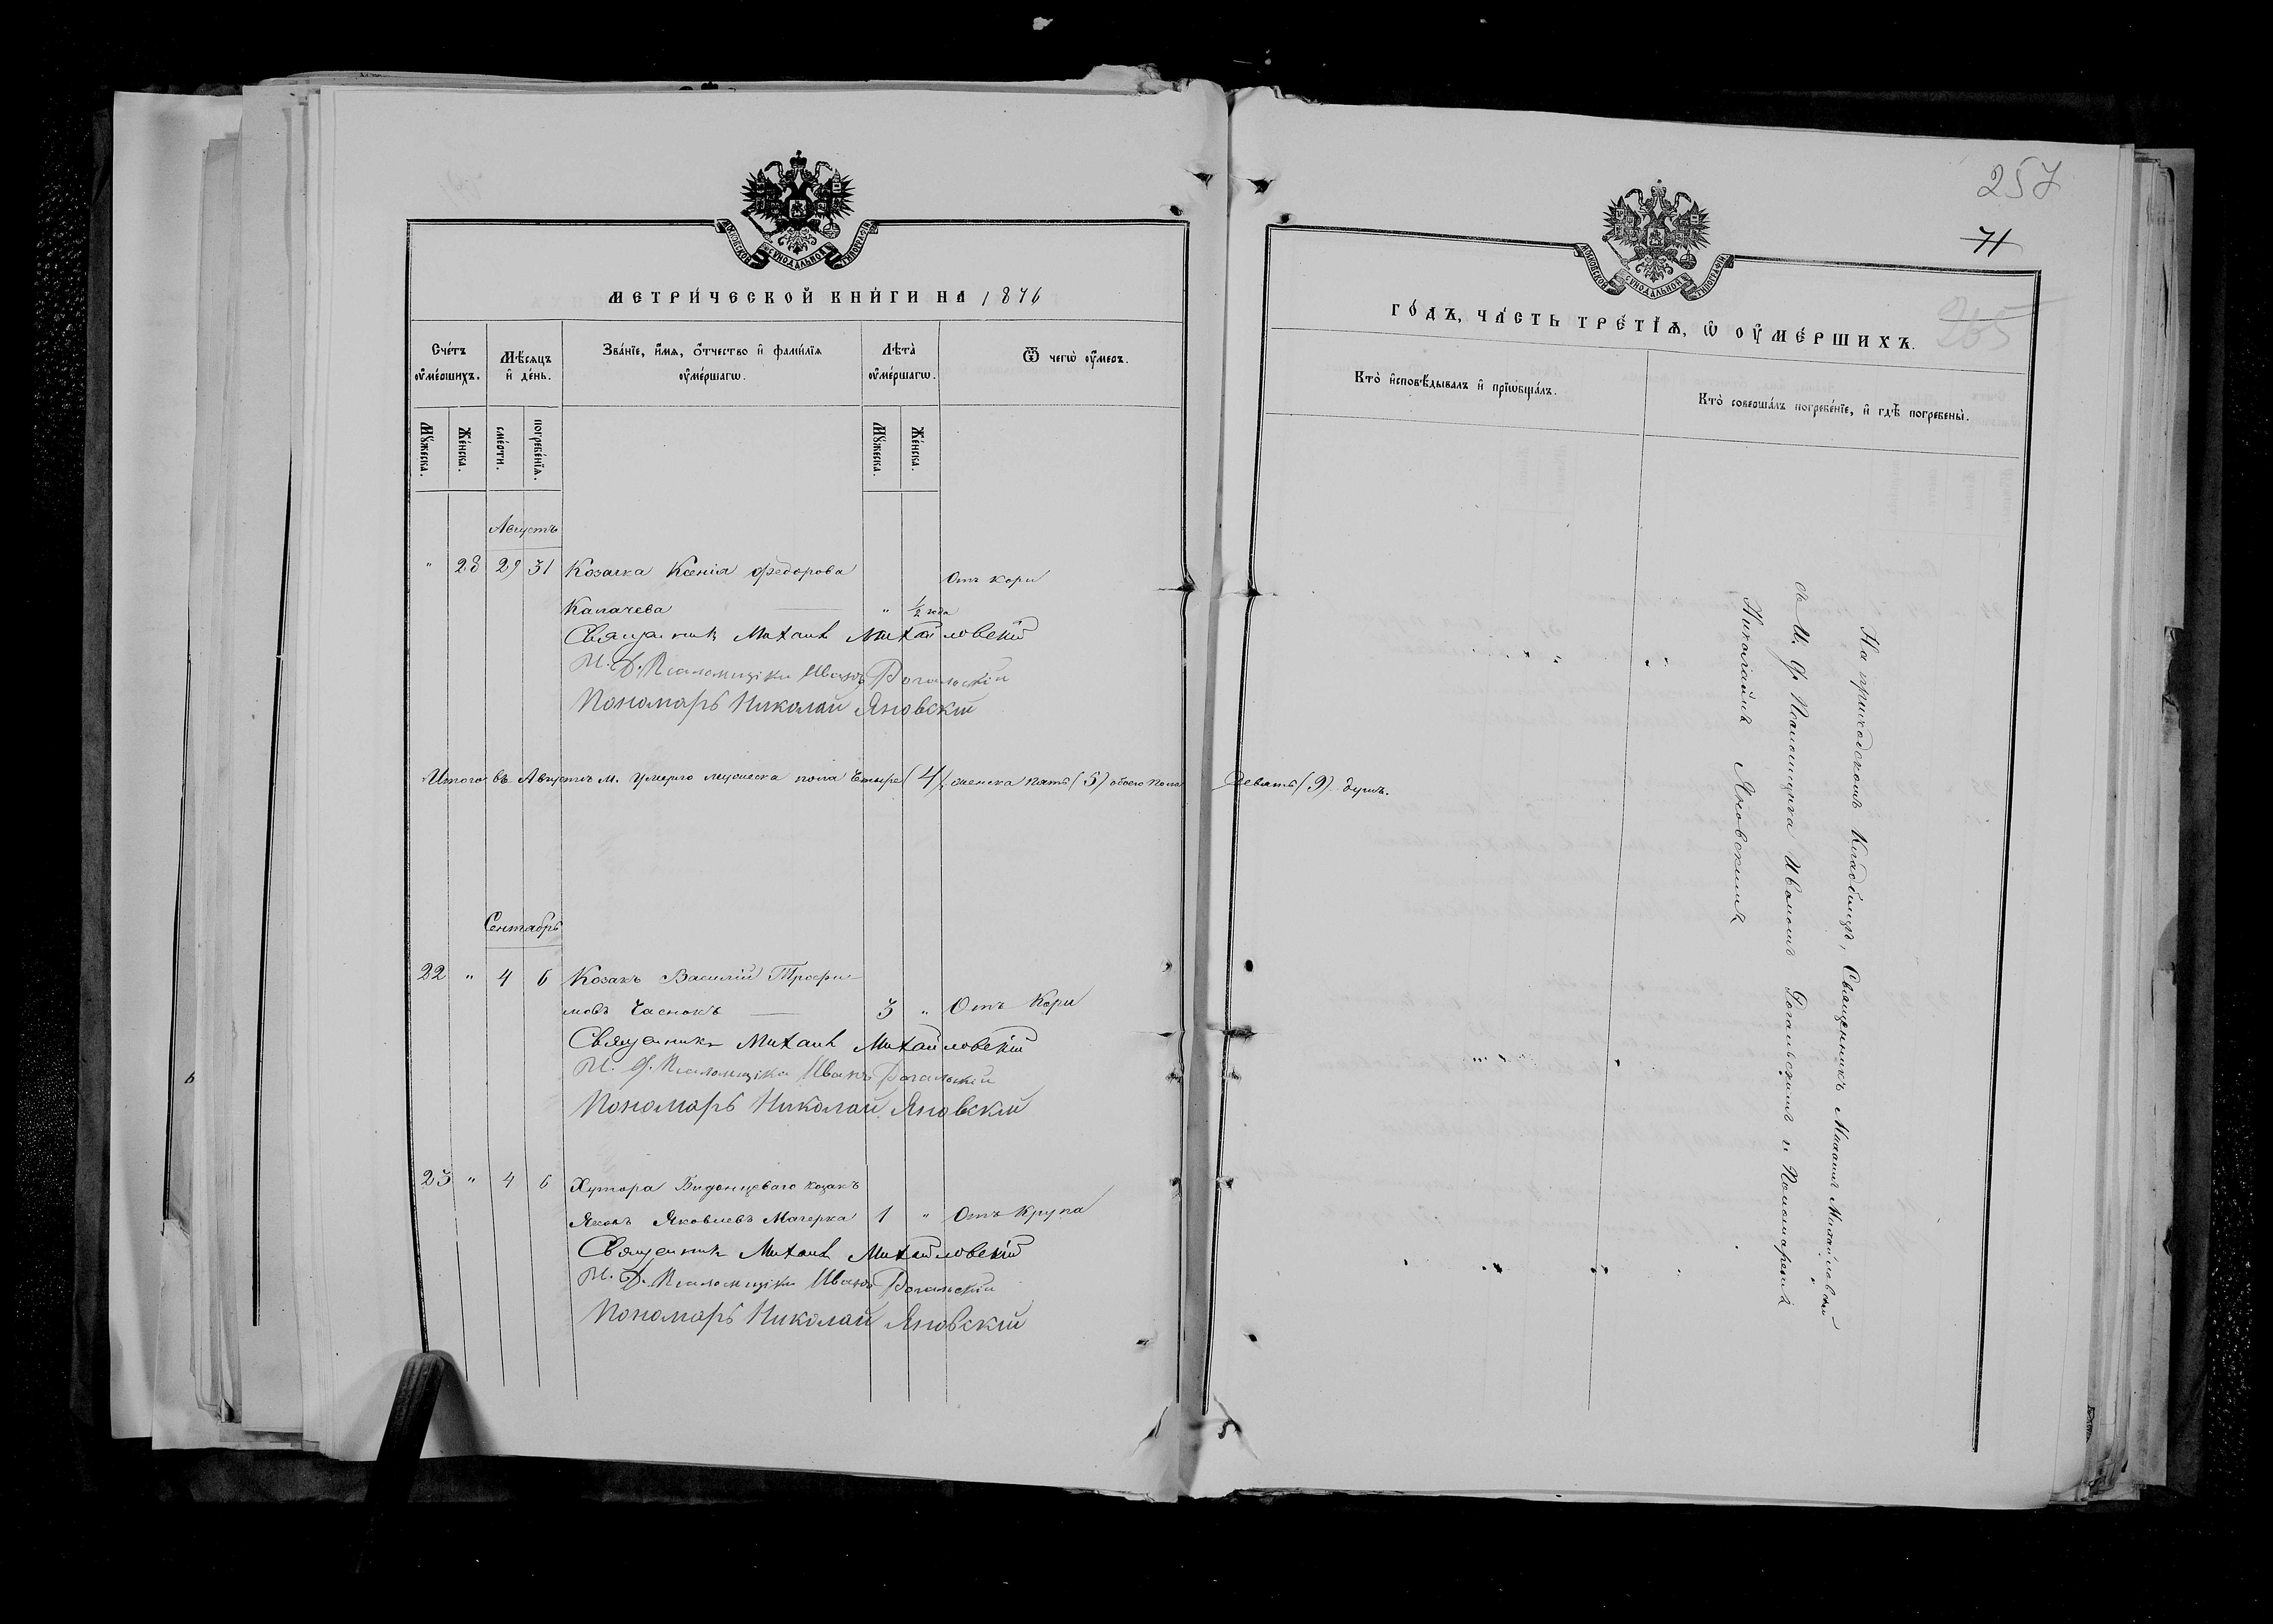 МОСКОВСКОЙ СУНОДАЛЬНОЙ ТИПОГРАФІИ
МЕТРИ́ЧЕСКОЙ КНИ́ГИ НА 1876
Сче́тъ ᲂу҆ме́ршихъ.
Мѣ́сяцъ и҆ де́нь.
Зва́нїе, и҆́мя, ѻ҆́тчество и҆ фами́лїя ᲂу҆ме́ршагѡ.
Лѣ́та ᲂу҆ме́ршагѡ.
Ѿ чегѡ̀ ᲂу҆́меръ.
Мꙋ́жеска.
Же́нска.
сме́рти.
погребе́нїѧ.
Мꙋ́жеска.
Же́нска.
Августъ
" 28 29 31 Козачка Ксенія Федорова Отъ кори
Калачева " 1/2 года
Священникъ Михаилъ Михайловскій
И. Д. Псаломщика Иванъ Рогальскій
Пономарь Николай Яновскій
Итого въ Августѣ м. умерло мужеска пола четыре (4), женска пять (5) обоего пола девять (9) душъ.
Сентябрь
22 " 4 6 Козакъ Василій Трофи-
мовъ Часнокъ 3 " Отъ Кори
Священникъ Михаилъ Михайловскій
И. Д. Псаломщика Иванъ Рогальскій
Пономарь Николай Яновскій
23 " 4 6 Хутора козакъ
Яковъ Яковлевъ Мачерка 1 " Отъ Крупа
Священникъ Михаилъ Михайловскій
И. Д. Псаломщика Иванъ Рогальскій
Пономарь Николай Яновскій
257
71
265
МОСКОВСКОЙ СУНОДАЛЬНОЙ ТИПОГРАФІИ
ГО́ДЪ, ЧА́СТЬ ТРЕ́ТЇѦ, Ѡ҆ ОУ҆МЕ́РШИХЪ.
Кто̀ и҆сповѣ́дывалъ и҆ прїѡбща́лъ.
Кто̀ соверша́лъ погребе́нїе, и҆ гдѣ̀ погребены̀.
На приходскомъ Кладбищѣ, Священникъ Михаилъ Михайловскій
съ И. Д. Псаломщика Иваномъ Рогальскимъ и Пономаремъ
Николаемъ Яновскимъ